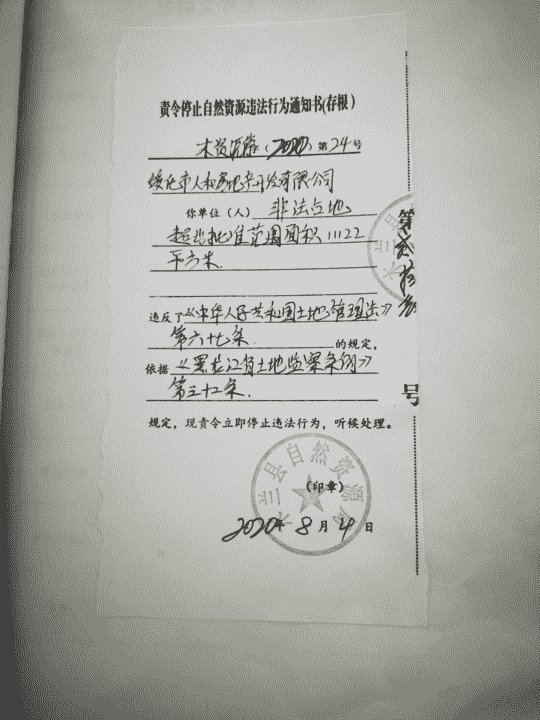 责令停止自然资源违法行为通知书(存根)
木资河停(2020)第24号
绥化市人和房地产开发有限公司
你单位(人)非法占地
超出批准范围面积11122
平方米.
违反了《中华人民共和国土地管理法》
第六十七条.的规定,
依据《黑龙江省土地监察条例》
第三十二条.
规定,现责令立即停止违法行为,听候处理。
(印章)
2020年8月4日
木兰县自然资源局
第贰拾
号